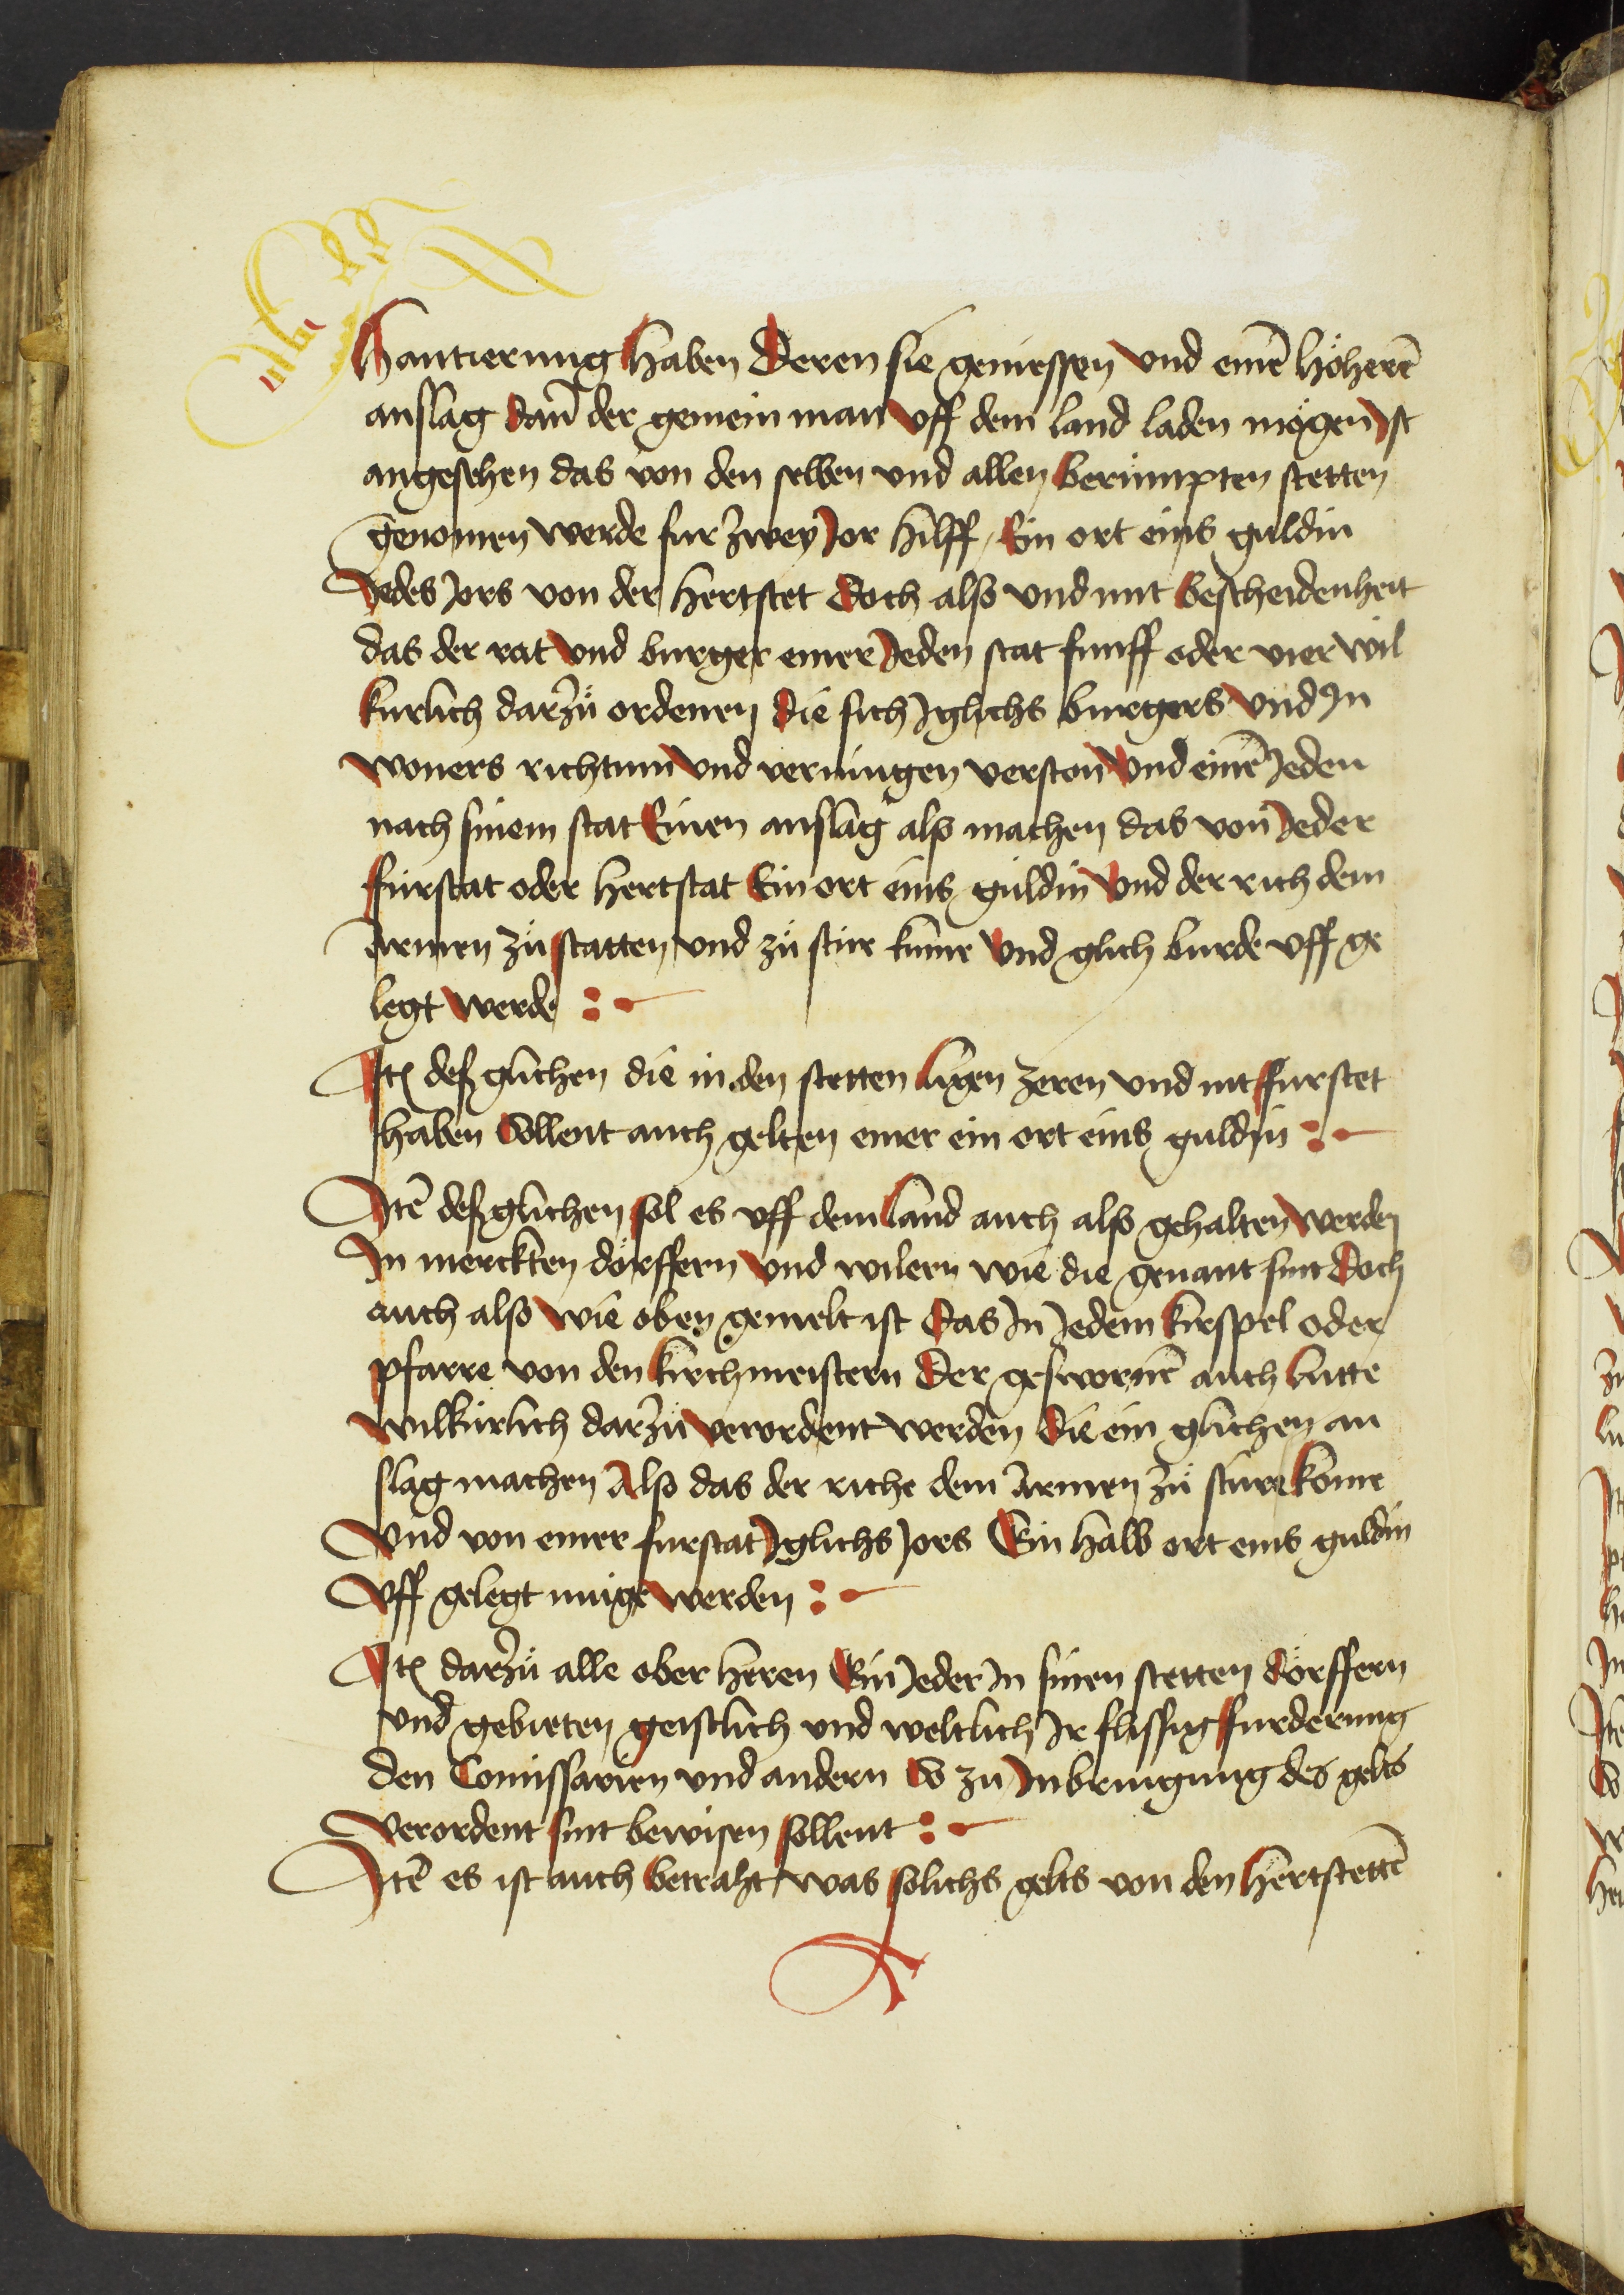 Hantierung haben Deren sie geniessen Vnd einē höherē
anslag dañ der gemein man vff dem land laden mögen Ist
angesehen das von den selben vnd allen Berümpten stetten
genomen werde fur zwey Jor hilff / Ein ort eins guldin
Jedes Jors von der hertstet Doch also vnd mit Bescheidenheit
das der rat Vnd burger einer Jeden stat funff oder vier wil
kurlich darzů ordenen Die sich Iglichs burgers Vnd In
woners richtum Vnd vermügen verston Vnd einē Jeden
nach sinem stat Einen anslag also machen das von Jeder
fürstat oder hertstat Ein ort eins guldin Vnd der rich dem
armen zů statten vnd zů stür kume Vnd glich burde vff ge
legt werde :-
Itē deß glichen die in den stetten ligen zeren vnd nit fürstet
haben Sollent auch gelten einer ein ort eins guldin :-
Itē deß glichen sol es vff dem land auch also gehalten werden
In merckten dörffern Vnd wilern wie die genant sint Doch
auch also wie oben gemelt ist Das In Jedem kirspel oder
pfarre von den kirchmeistern Der geswornē auch lutte
wilkürlich darzů verordent werden Die ein glichen an
slag machen Also das der riche dem armen zů stüre kome
Vnd von einer fürstat Iglichs Jors Ein halb ort eins guldin
Vff gelegt müge werden :-
Itē darzů alle ober herren Ein Jeder In sinen stetten Dörffern
vnd gebieten geistlich vnd weltlich Ir flissig furderung
den Comissarien vnd andern So zů Inbringung des gelts
verordent sint bewisen sollent :-
Itē es ist auch betraht was solichs gelts von den hertstettē